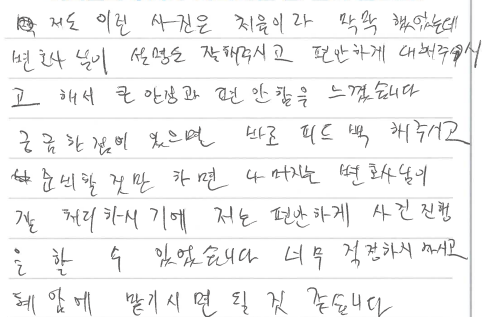 저도 이런 사건은 처음이라 막막 했었는데
변호사 님이 설명도 잘해주시고 편안하게 대해주시
고 해서 큰 안정과 편안함을 느꼈습니다
궁금한 점이 있으면 바로 피드백 해주시고
준비할 것만 하면 나머지는 변호사님이
잘 처리하시기에 저는 편안하게 사건 진행
을 할 수 있었습니다 너무 걱정하지 마시고
앞에 맡기시면 될 것 같습니다